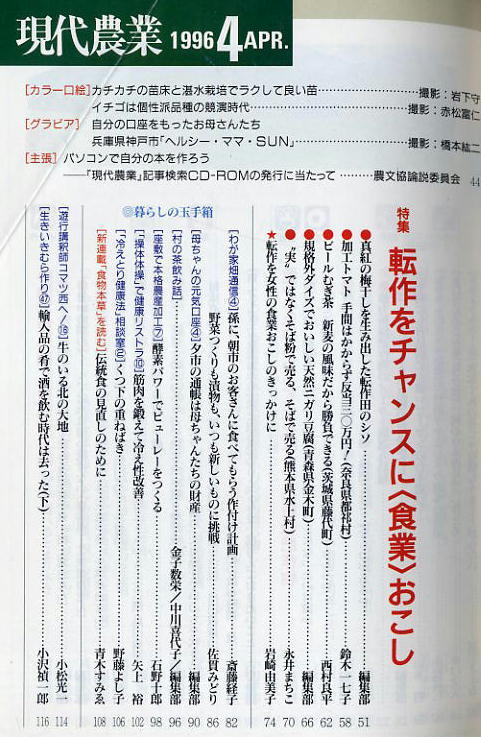 現代農業 1996 4 APR.
[カラー口絵] カチカチの苗床と湛水栽培でラクして良い苗……撮影：岩下守
イチゴは個性派品種の競演時代……撮影：赤松富仁
[グラビア] 自分の口座をもったお母さんたち
兵庫県神戸市「ヘルシー・ママ・SUN」……撮影：橋本紘二
[主張] パソコンで自分の本を作ろう
――『現代農業』記事検索CD-ROMの発行に当たって……農文協論説委員会 44
特集 転作をチャンスに〈食業〉おこし
●真紅の梅干しを生み出した転作田のシソ……編集部 51
●加工トマト 手間はかからず反当三〇万円！（奈良県都祁村）……鈴木一七子 58
●ビールむぎ茶 新麦の風味だから勝負できる（茨城県藤代町）……西村良平 62
●規格外ダイズでおいしい天然ニガリ豆腐（青森県金木町）……編集部 66
●“実”ではなくそば粉で売る、そばで売る（熊本県水上村）……永井まちこ 70
★転作を女性の食業おこしのきっかけに……岩崎由美子 74
◎暮らしの玉手箱
[わが家畑通信④] 孫に、朝市のお客さんに食べてもらう作付け計画……斎藤経子 82
野菜つくりも漬物も、いつも新しいものに挑戦……佐賀みどり 86
[母ちゃんの元気口座④] 夕市の通帳は母ちゃんたちの財産……編集部 90
[村の茶飲み話]……金子数栄／中川喜代子／編集部 96
[座敷で本格農産加工⑦] 酵素パワーでピューレーをつくる……石野十郎 98
[「操体体操」で健康リストラ⑩] 筋肉を鍛えて冷え性改善……矢上裕 102
[「冷えとり健康法」相談室] くつ下の重ねばき……野藤よし子 106
[新連載「食物本草」を読む] 伝統食の見直しのために……青木すみゑ 108
[遊行講釈師コマツ西へ！⑯] 牛のいる北の大地……小松光一 114
[生きいきむら作り㊼] 輸入品の肴で酒を飲む時代は去った（下）……小沢禎一郎 116